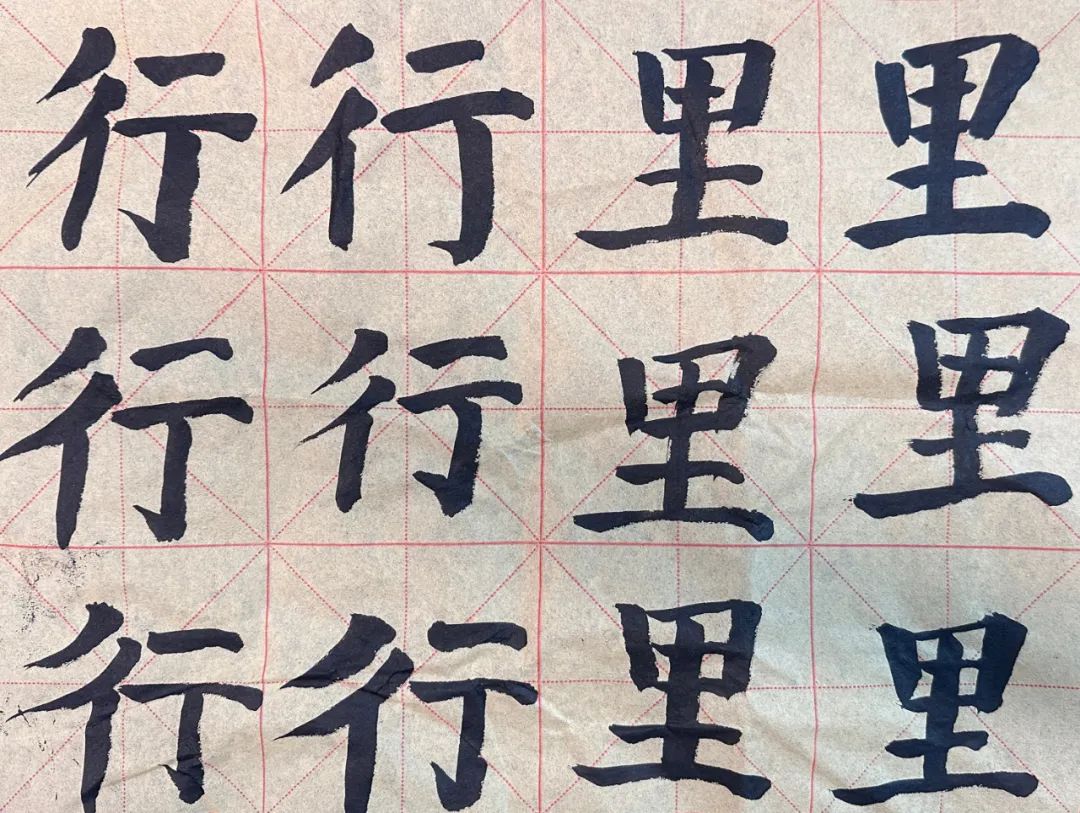 行行里里
行行里里
行行里里